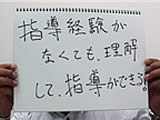 指導経験が
なくても、理解
して、指導ができる!